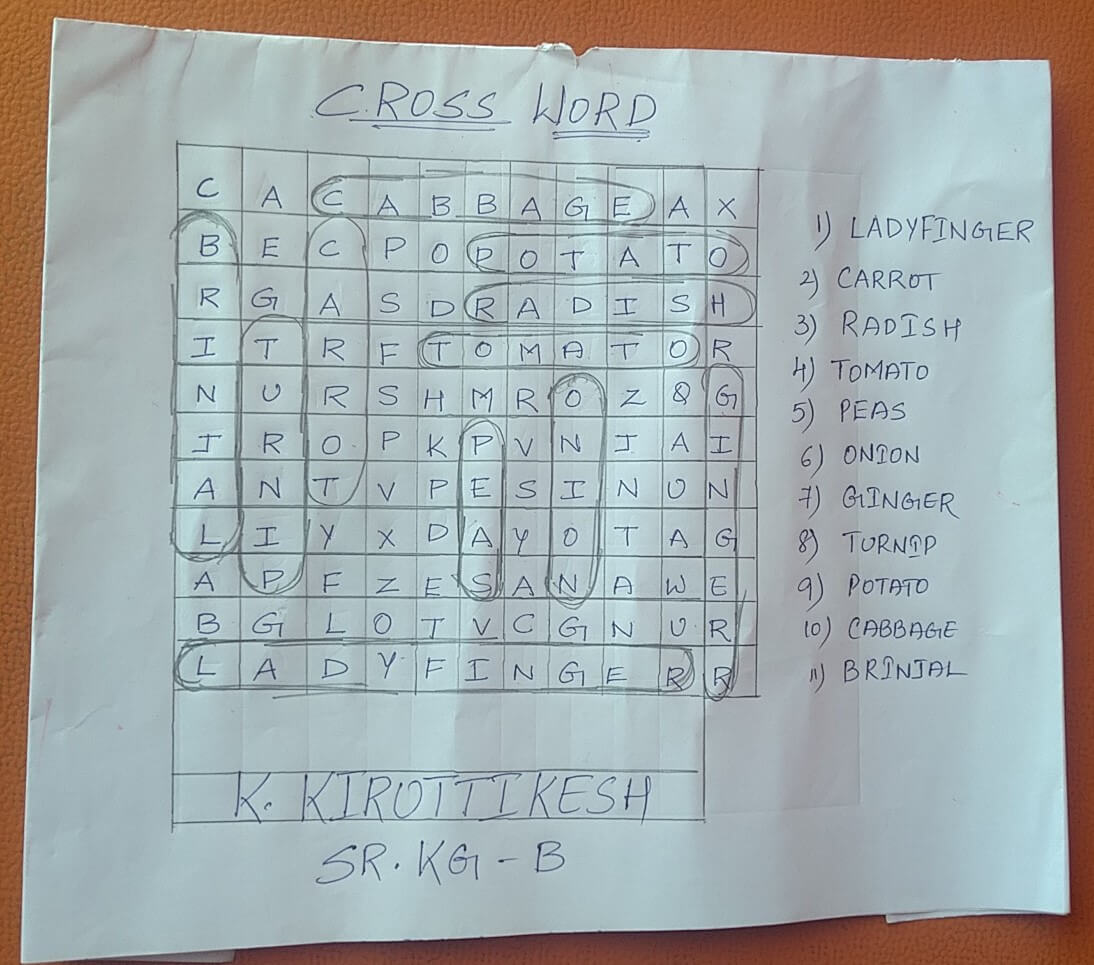 CROSS WORD
C A C A B B A G E A X
B E C P O P O T A T O
R G A S D R A D I S H
I T R F T O M A T O R
N U R S H M R O Z Q G
J R O P K P V N J A I
A N T V P E S I N U N
L I Y X D A Y O T A G
A P F Z E S A N A W E
B G L O T V C G N U R
L A D Y F I N G E R R
1) LADYFINGER
2) CARROT
3) RADISH
4) TOMATO
5) PEAS
6) ONION
7) GINGER
8) TURNIP
9) POTATO
10) CABBAGE
11) BRINJAL
K. KIROTTIKESH
SR. KG - B